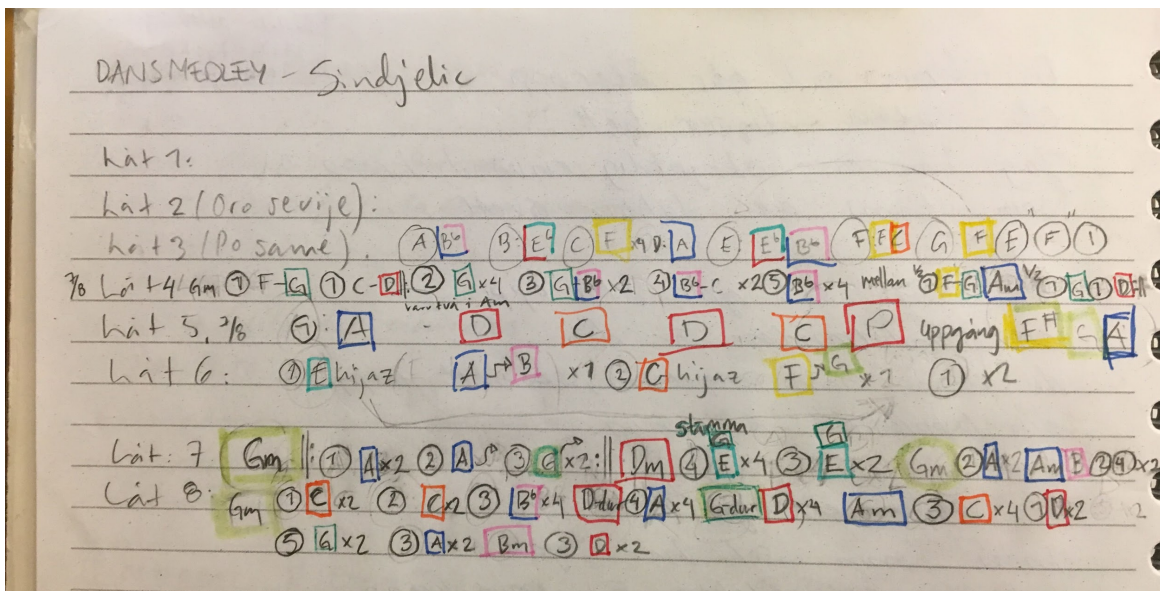 DANSMEDLEY - Sindjelic
Låt 1:
Låt 2 (Oro sevije):
Låt 3 (Po same). A Bb B: Eb C F x4 D: A E Eb Bb F: E G F E F 1
7/8 Låt 4 Gm 1 F-G 1 C-D :||: 2 G x4 3 G+Bb x2 4 Bb-C x2 5 Bb x4 mellan 1/2 1 F-G Am 1/2 1 G 1 D
Låt 5, 7/8 1. A - D C D C D uppgång F# G A
Låt 6: 1 E hijaz A → B x1 2 C hijaz F → G x1 1 x2
stämma
G G
Låt: 7 Gm ||: 1 A x2 2 A → 3 G x2 :|| Dm 4 E x4 3 E x2 Gm 2 A x2 Am E 2 4 x2
Låt 8: Gm 1 C x2 2 C x2 3 Bb x4 D-dur 4 A x4 G-dur D x4 Am 3 C x4 1 D x2 2
5 G x2 3 A x2 Bm 3 D x2